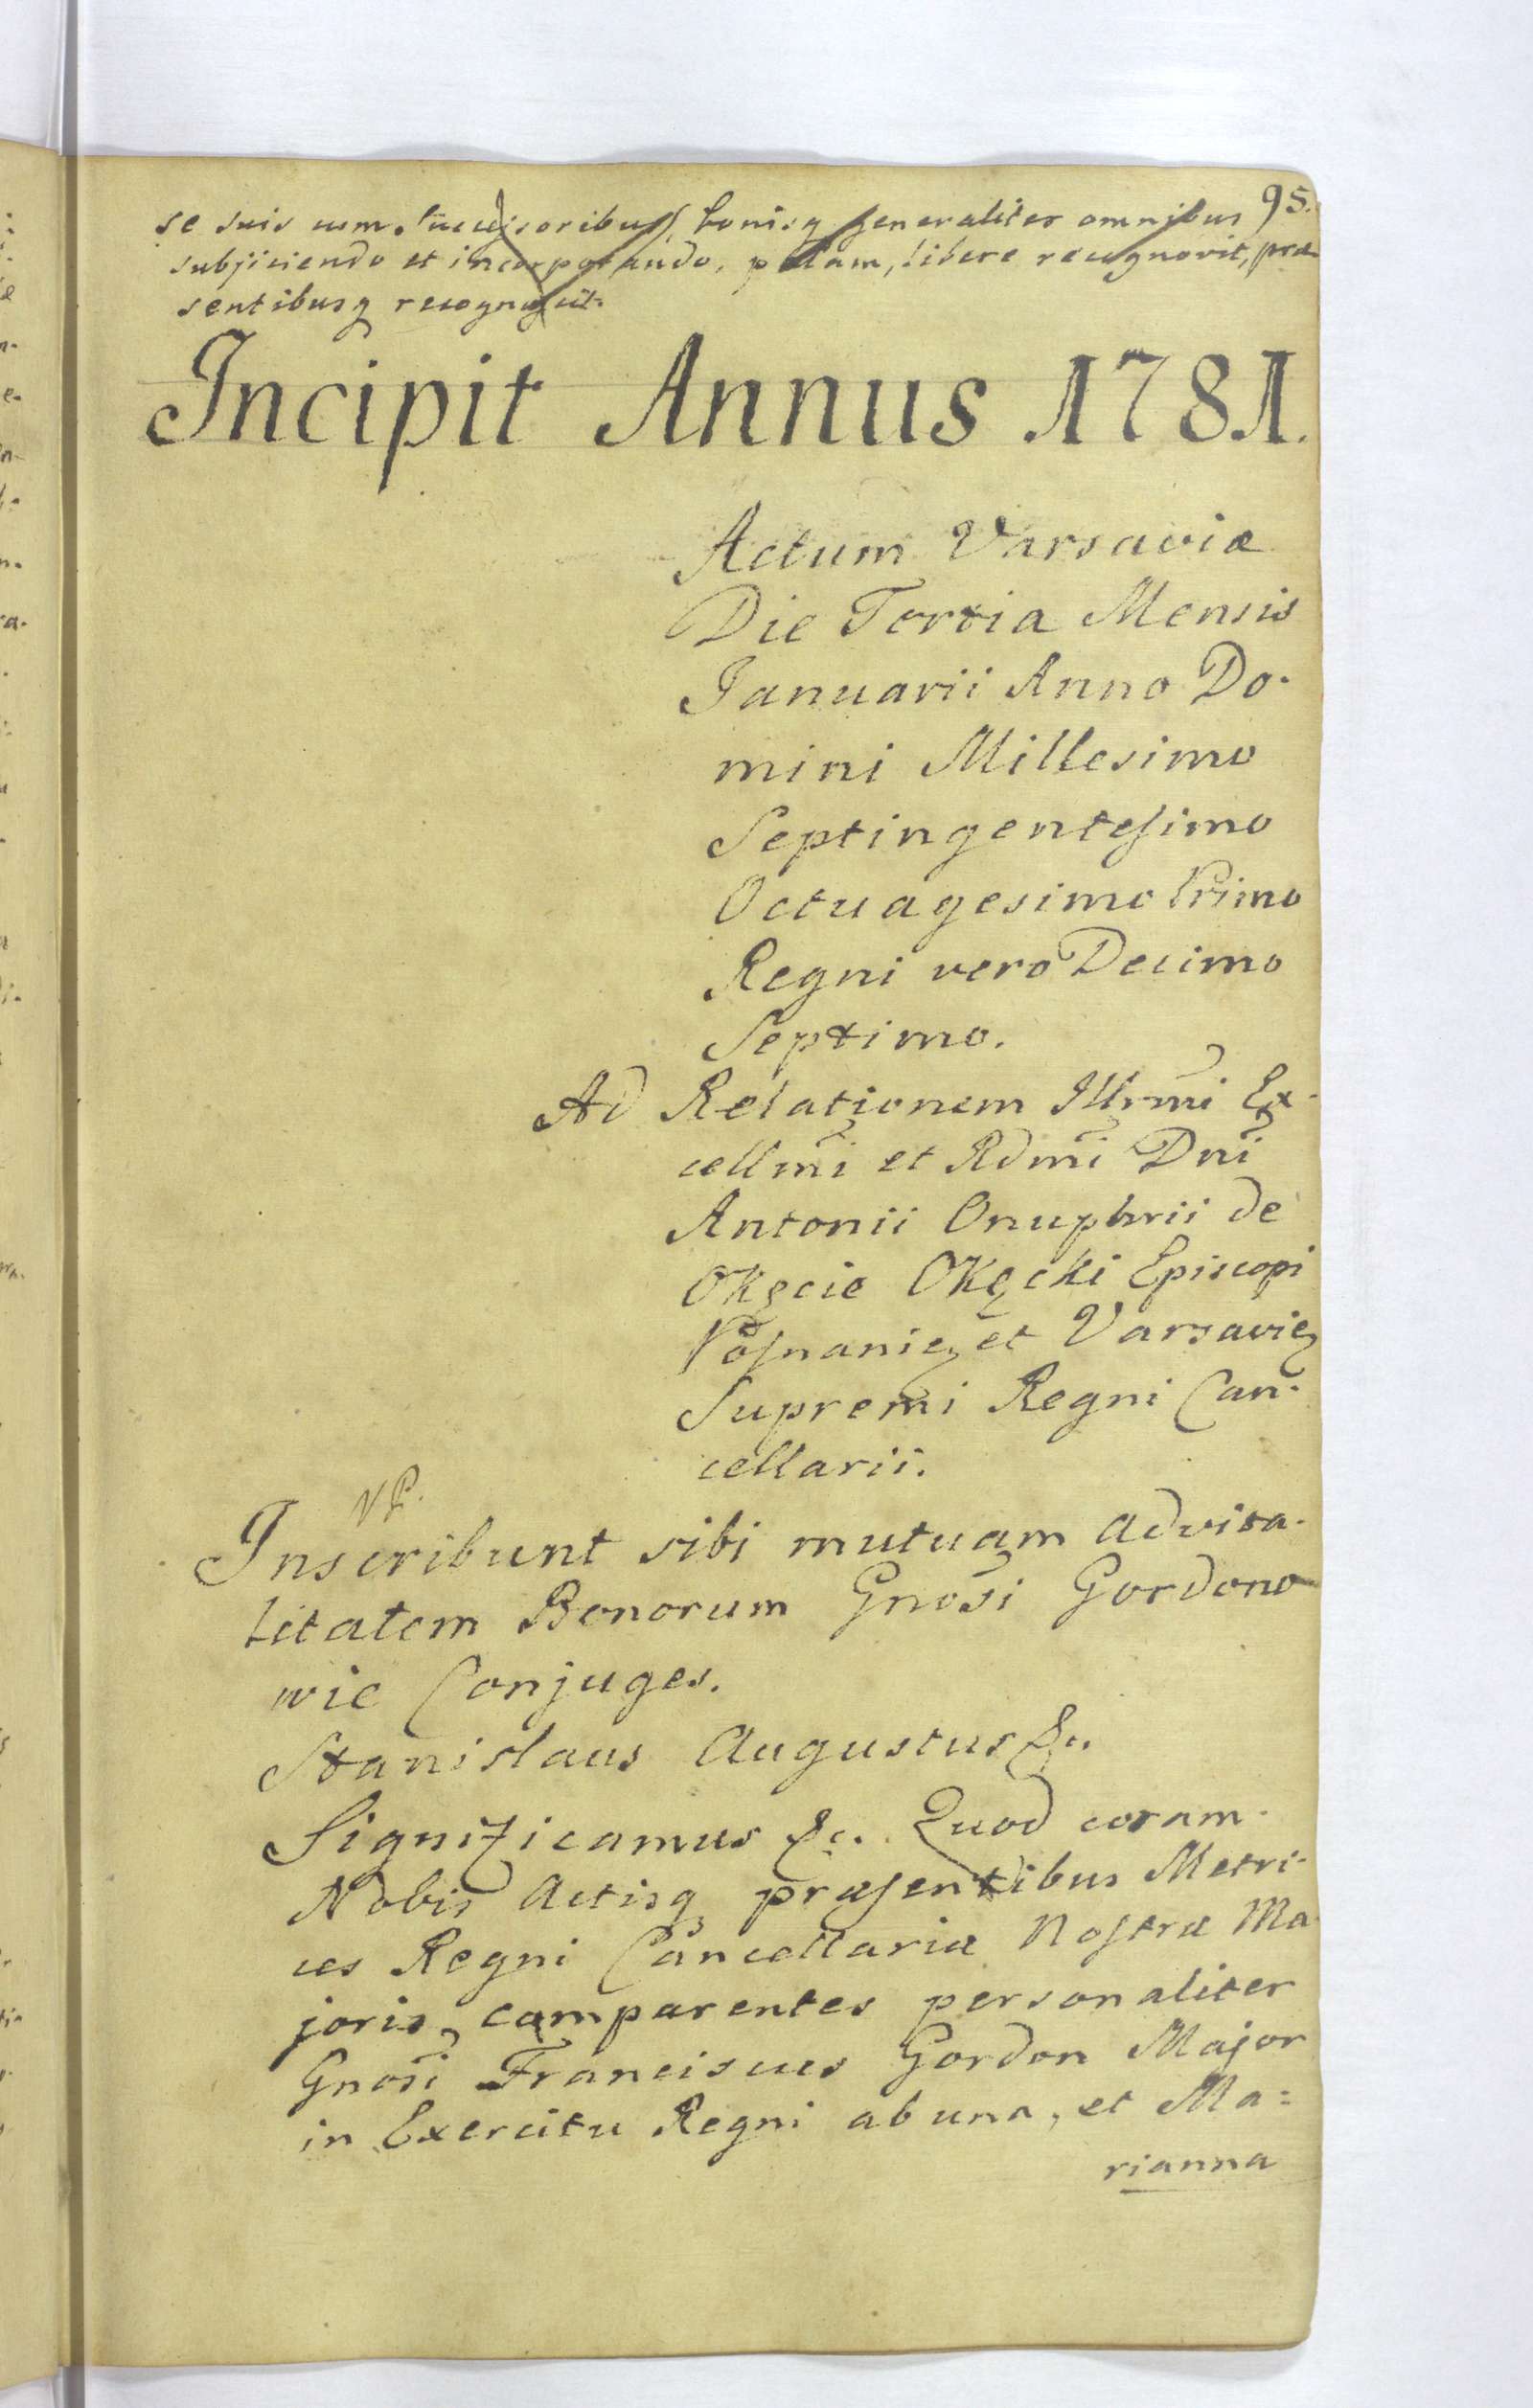 95.
se suis cum Succussoribus, bonisq generaliter omnibus
subjiciendo et incorporando, palam, libere recognovit, præ
sentibusq recognoscit.
Incipit Annus 1781.
Actum Varsaviæ
Die Tertia Mensis
Januarii Anno Do-
mini Millesimo
Septingentesimo
Octuagesimo Primo
Regni vero Decimo
Septimo.
Ad Relationem Illrmi Ex-
cellmi et Rdmi Dni
Antonii Onuphrii de
Okęcie Okęcki Episcopi
Posnanię et Varsavię
Supremi Regni Can-
cellarii.
NP.
Inscribunt sibi mutuam advita-
litatem Bonorum Gnosi Gordono
wie Conjuges.
Stanislaus Augustus &c.
Significamus &c. Quod coram
Nobis Actisq præsentibus Metri-
ces Regni Cancellariæ Nostræ Ma
joris, comparentes personaliter
Gnosi Franciscus Gordon Major
in Exercitu Regni ab una, et Ma=
rianna